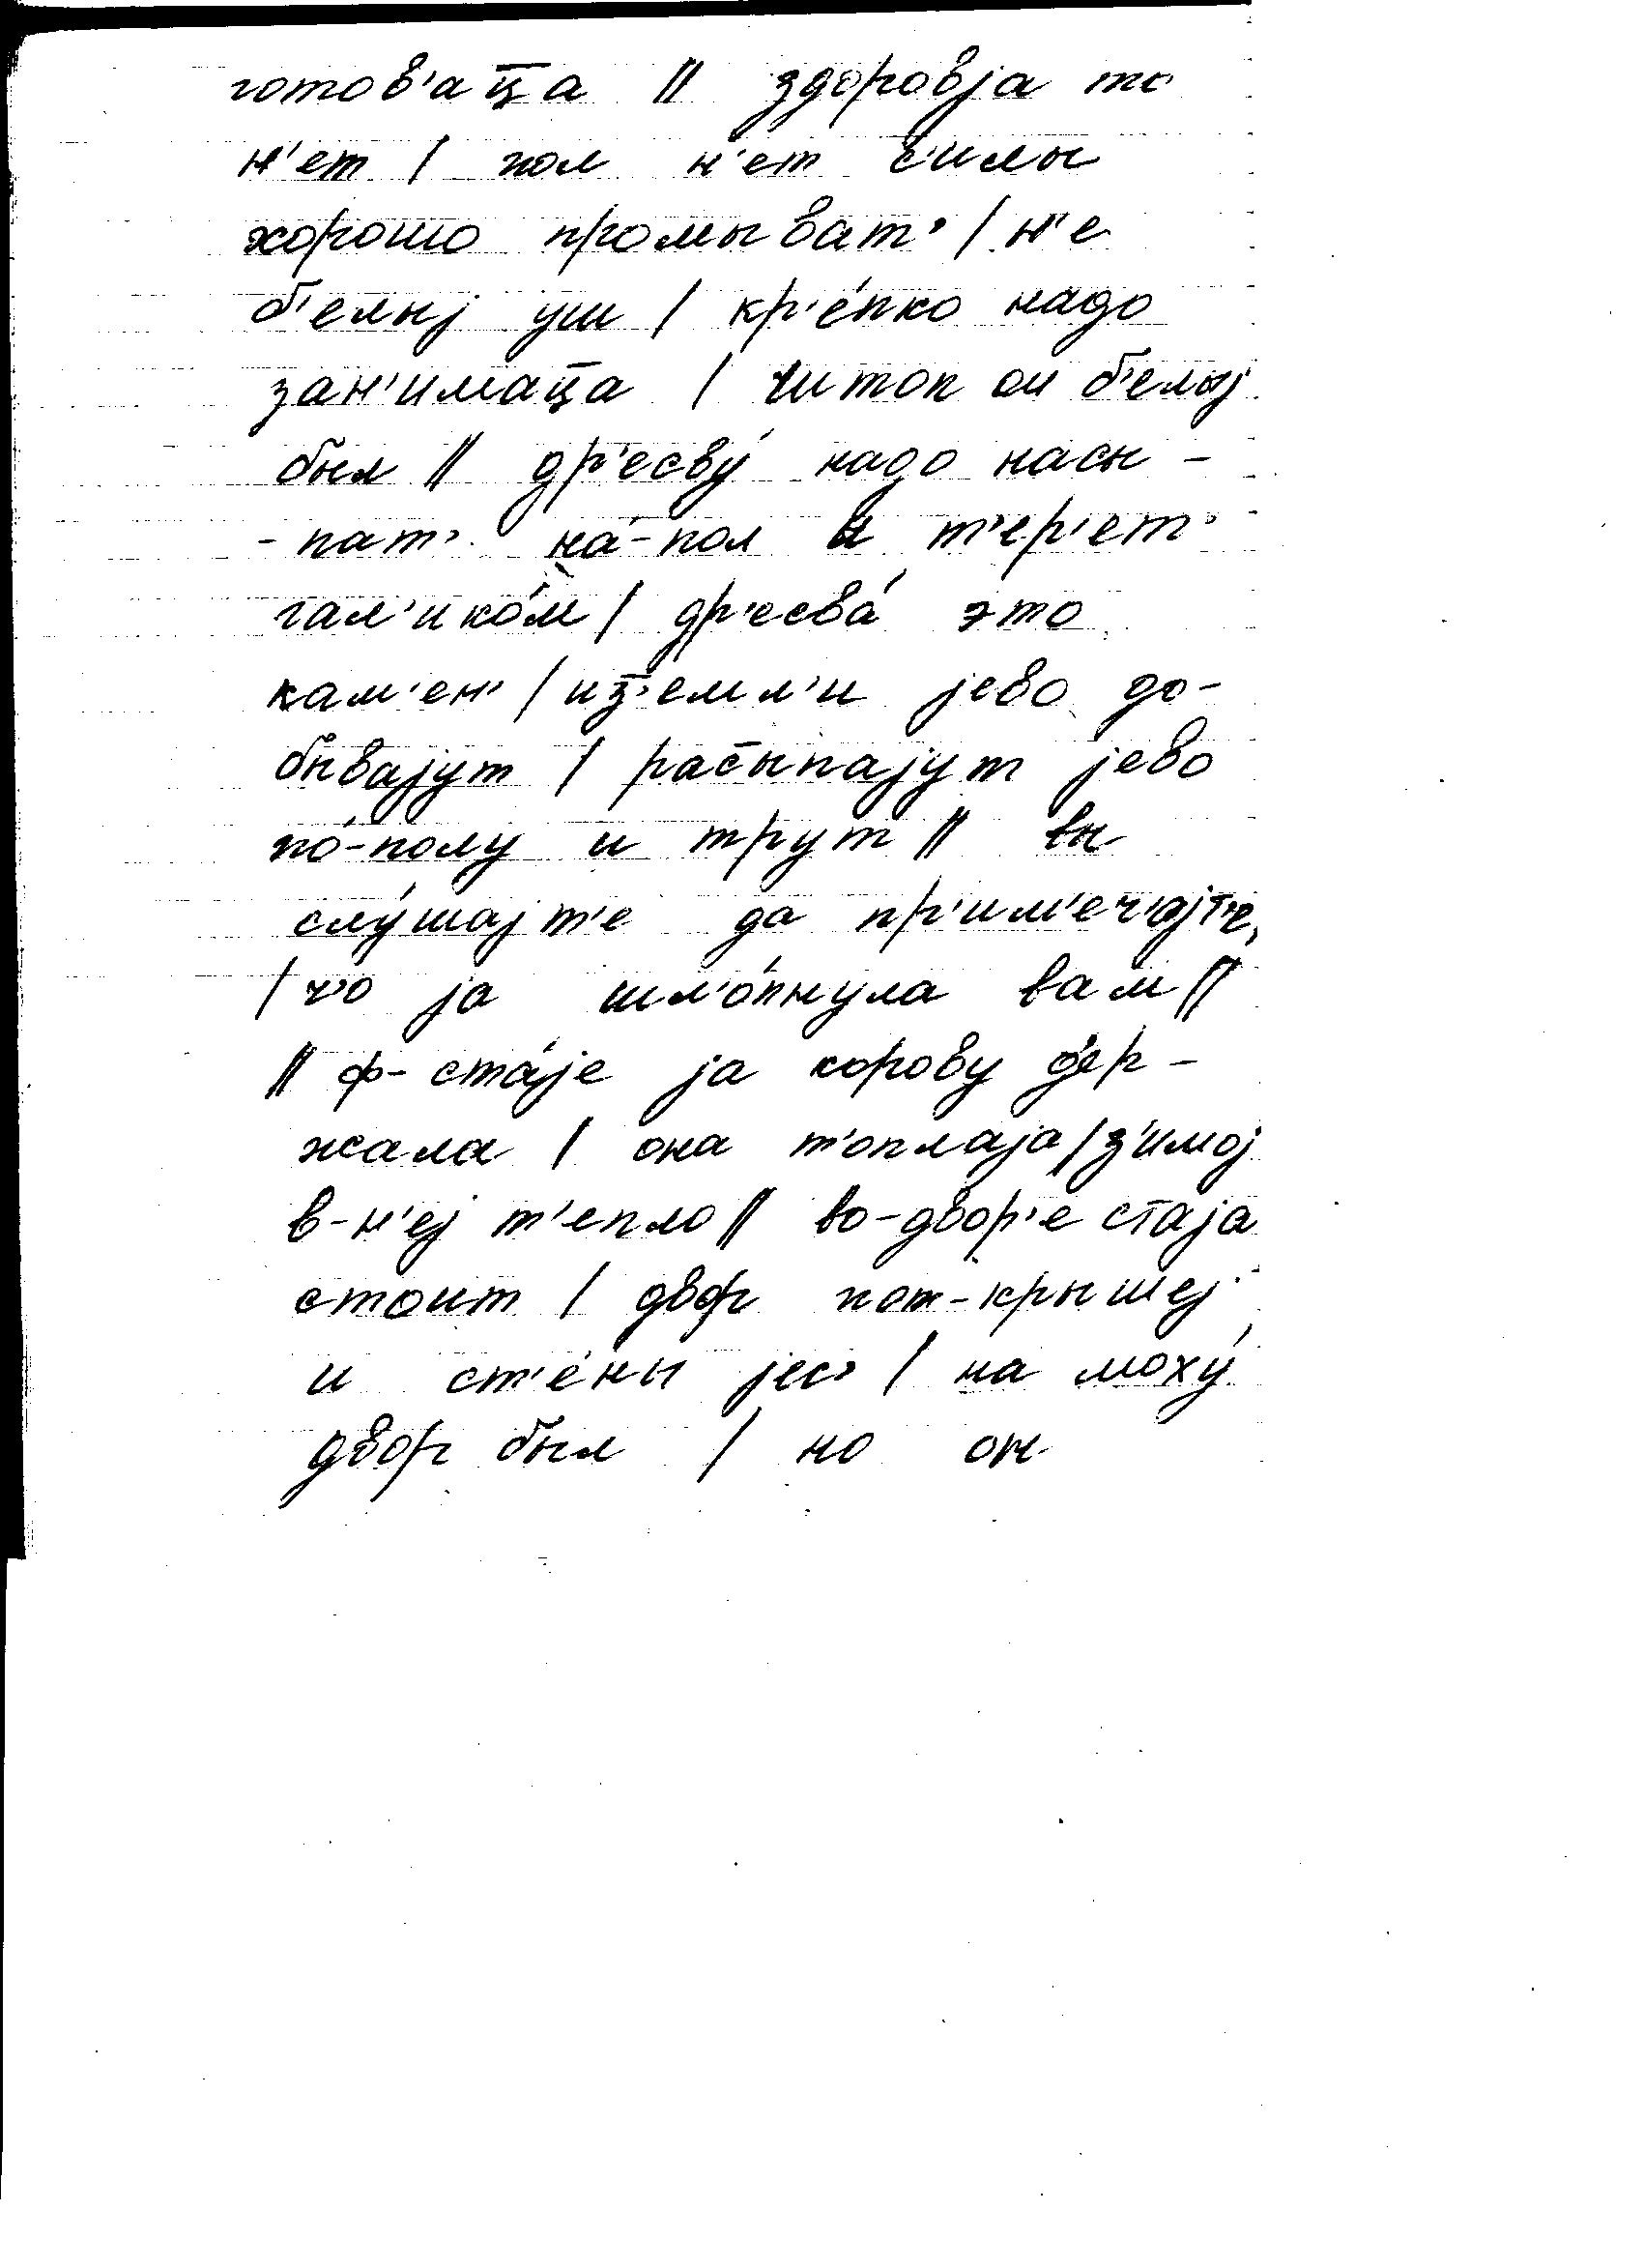 готов'ац̄а || здоровја то
н'ет / пол н'ет с'илы
хорошо промыват' / н'е
б'елыј уш / кр'е́пко надо
зан'имац̄а / штоп он б'елыј
был || др'есву́ надо насы-
-пат' на́-пол и т'ер'ет'
гал'ико́м / др'есва́ это
кам'ен' / из̄'емл'и јево до-
бывајут / рас̄ыпајут јево
по́-полу и трут || вы
слу́шајт'е да пр'им'еч'ајт'е,
/ ч'о ја шл'о́пнула вам ||
|| ф-ста́је ја корову д'ер-
жала / она т'оплаја / з'имој
в-н'еј т'епло || во-двор'е стаја
стоит / двор пот-крышеј
и ст'е́ны јес' / на моху́
двор был / но он